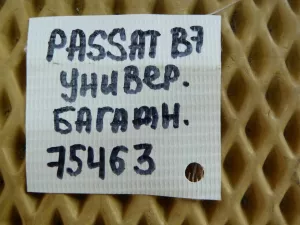 PASSAT B7
УНИВЕР.
БАГАЖН.
75463